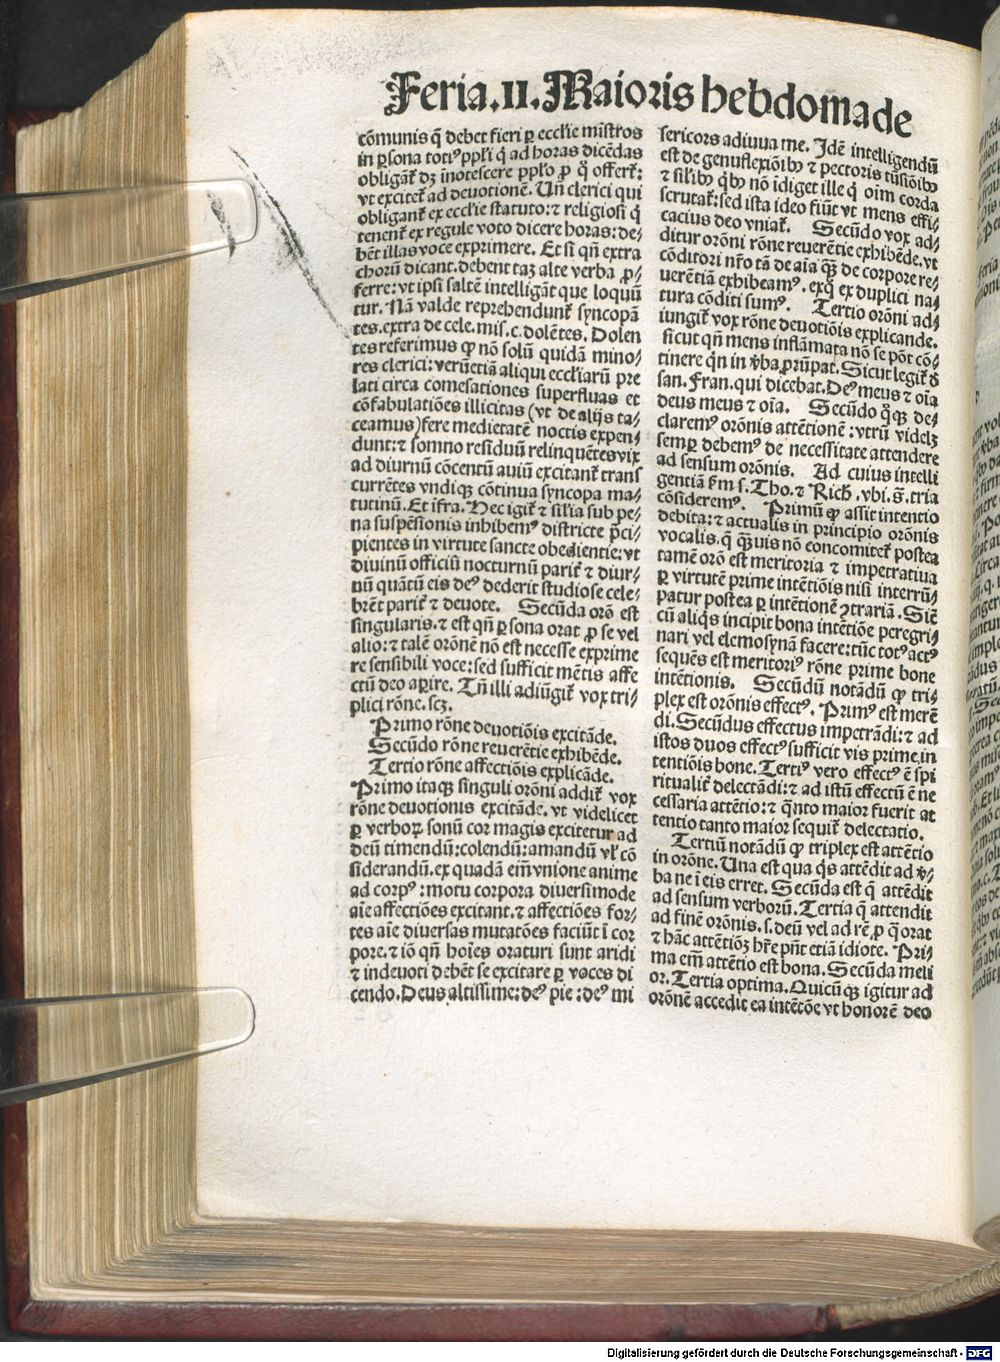 Feria.II.Maioris hebdomade
cōmunis q̄ debet fieri ꝑ eccl'ie mīstros
in ꝑsona toti⁹ ppl'i q̄ ad horas dicēdas
obligāt̄ dꝫ inotescere pplō ꝓ q̊ offert̄:
vt excitet̄ ad deuotionē. Uñ clerici qui
obligant̄ ex eccl'ie statuto: ⁊ religiosi q̄
tenent̄ ex regule voto dicere horas: de⸗
bēt illas voce exprimere. Et si qñ extra
chorū dicant. debent taꝫ alte verba ꝓ⸗
ferre: vt ipsi saltē intelligāt que loquū
tur. Nā valde reprehendunt̄ syncopā
tes. extra de cele. mis. c. dolētes. Dolen
tes referimus ꝙ nō solū quidā mino⸗
res clerici: verūetiā aliqui eccl'iarū pre
lati circa comesationes superfluas et
cōfabulatiōes illicitas (vt de alijs ta⸗
ceamus) fere medietatē noctis expen⸗
dunt: ⁊ somno residuū relinquētes vix
ad diurnū cōcentū auiū excitant̄ trans
currētes vndiqꝫ cōtinua syncopa ma⸗
tutinū. Et īfra. Hec igit̄ ⁊ sil'ia sub pe⸗
na suspēsionis inhibem⁹ districte p̄ci⸗
pientes in virtute sancte obedientie: vt
diuinū officiū nocturnū parit̄ ⁊ diur⸗
nū quātū eis de⁹ dederit studiose cele⸗
brēt parit̄ ⁊ deuote. Secūda orō est
singularis. ⁊ est qñ ꝑsona orat ꝓ se vel
alio: ⁊ talē orōnē nō est necesse exprime
re sensibili voce: sed sufficit mētis affe
ctū deo aꝑire. Tñ illi adiūgit̄ vox tri⸗
plici rōne. scꝫ.
Primo rōne deuotiōis excitāde.
Secūdo rōne reuerētie exhibēde.
Tertio rōne affectiōis explicāde.
Primo itaqꝫ singuli orōni addit̄ vox
rōne deuotionis excitāde. vt videlicet
ꝑ verboꝝ sonū cor magis excitetur ad
deū timendū: colendū: amandū vl' cō
siderandū. ex quadā em̄ vnione anime
ad corp⁹: motu corpora diuersimode
aīe affectiōes excitant. ⁊ affectiōes for⸗
tes aīe diuersas mutatōes faciūt ī cor
pore. ⁊ iō qñ hoīes oraturi sunt aridi
⁊ indeuoti debēt se excitare ꝑ voces di
cendo. Deus altissime: de⁹ pie: de⁹ mi
sericors adiuua me. Idē intelligendū
est de genuflexiōibꝰ ⁊ pectoris tūsiōibꝰ
⁊ sil'ibꝰ q̇bꝰ nō īdiget ille q̄ oīm corda
scrutat̄: sed ista ideo fiūt vt mens effi⸗
cacius deo vniat̄. Secūdo vox ad⸗
ditur orōni rōne reuerētie exhibēde. vt
cōditori nr̄o tā de aīa qꝫ de corpore re⸗
uerētiā exhibeam⁹. exq̊ ex duplici na⸗
tura cōditi sum⁹. Tertio orōni ad⸗
iungit̄ vox rōne deuotiōis explicande.
sicut qñ mens inflāmata nō se pōt cō⸗
tinere q̇n in v̄ba ꝓrūpat. Sicut legit̄ d̄
san. Fran. qui dicebat. De⁹ meus ⁊ oīa
deus meus ⁊ oīa. Secūdo q̊qꝫ de⸗
clarem⁹ orōnis attētionē: vtrū videlꝫ
semꝑ debem⁹ de necessitate attendere
ad sensum orōnis. Ad cuius intelli
gentiā ẜm s. Tho. ⁊ Rich. vbi. s̄. tria
cōsiderem⁹. Primū ꝙ assit intentio
debita: ⁊ actualis in principio orōnis
vocalis. q̄ qꝫuis nō concomitet̄ postea
tamē orō est meritoria ⁊ impetratiua
ꝑ virtutē prime intētiōis nisi interrū⸗
patur postea ꝑ intētionē ꝯtrariā. Sic̄
cū aliq̇s incipit bona intētiōe peregri⸗
nari vel elemosynā facere: tūc tot⁹ act⁹
sequēs est meritori⁹ rōne prime bone
intētionis. Secūdū notādū ꝙ tri⸗
plex est orōnis effect⁹. Prim⁹ est merē
di. Secūdus effectus impetrādi: ⁊ ad
istos duos effect⁹ sufficit vis prime in
tentiōis bone. Terti⁹ vero effect⁹ ē spi
ritualit̄ delectādi: ⁊ ad istū effectū ē ne
cessaria attētio: ⁊ q̊nto maior fuerit at
tentio tanto maior sequit̄ delectatio.
Tertiū notādū ꝙ triplex est attētio
in orōne. Una est qua q̇s attēdit ad v̄⸗
ba ne ī eis erret. Secūda est q̄ attēdit
ad sensum verborū. Tertia q̄ attendit
ad finē orōnis. s. deū vel ad rē, ꝓ q̄ orat
⁊ hāc attētiōꝫ hr̄e pn̄t etiā idiote. Pri⸗
ma em̄ attētio est bona. Secūda meli
or. Tertia optima. Quicūqꝫ igitur ad
orōnē accedit ea intētōe vt honorē deo
Digitalisierung gefördert durch die Deutsche Forschungsgemeinschaft - DFG